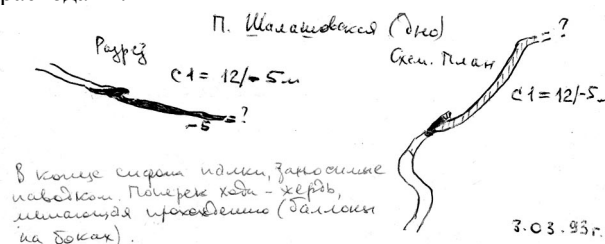 П. Шалашовская (дно)
Разрез
Схем. План
= ?
С1 = 12/-5м
С1 = 12/-5м
= ?
-5
В конце сифона палки, заносимые
паводком. Поперек хода - жердь,
мешающая прохождению (баллоны
на боках).
3.03.93г.